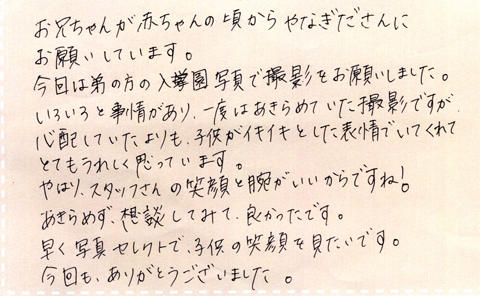 お兄ちゃんが赤ちゃんの頃からやなぎださんに
お願いしています。
今回は弟の方の入園写真で撮影をお願いしました。
いろいろと事情があり、一度はあきらめていた撮影ですが、
心配していたよりも、子供がイキイキとした表情でいてくれて
とてもうれしく思っています。
やはり、スタッフさんの笑顔と腕がいいからですね!
あきらめず、想談してみて、良かったです。
早く写真セレクトで、子供の笑顔を見たいです。
今回も、ありがとうございました。